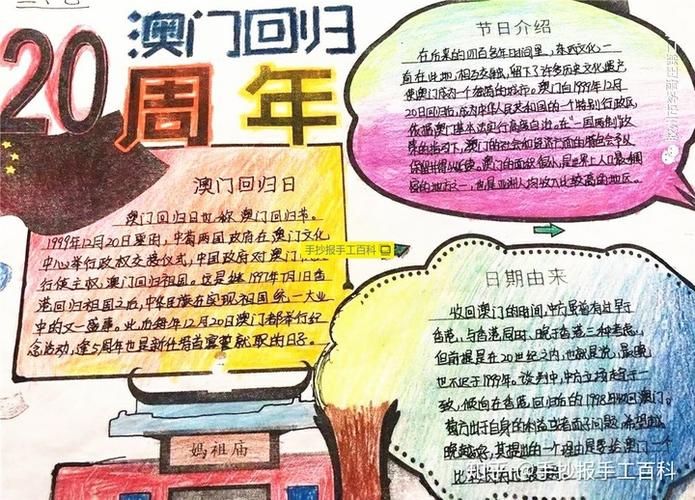 澳门回归
20周年
节日介绍
在后来的四百多年时间里，东西文化一
直在此地相互交融，留下了许多历史文化遗产
使澳门成为一个独特的城市。澳门自1999年12月
20日回归后，成为中华人民共和国的一个特别行政区，
依据澳门基本法实行高度自治。在“一国两制”政
策的指引下，澳门的社会和经济方面的特色会予以
保留并得以延续。澳门的面积很小，是世界上人口最稠
密的地方之一，也是亚洲人均收入比较高的地区。
澳门回归日
澳门回归日也称澳门回归节。
1999年12月20日零时，中葡两国政府在澳门文化
中心举行政权交接仪式，中国政府对澳门
行使主权，澳门回归祖国。这是继1997年7月1日香
港回归祖国之后，中华民族在实现祖国统一大业
中的又一盛事。此后每年12月20日澳门都举行纪
念活动，逢5周年也是新任特首宣誓就职的日子。
手抄报手工百科
日期由来
收回澳门的时间，中方最初有过早于
香港，与香港同时、晚于香港三种考虑，
但前提是在20世纪之内，也就是说，最晚
也不迟于1999年。谈判中，中方立场趋于一
致，倾向在香港回归后的1998年收回澳门。
葡方出于自身的利益或者面子问题，希望越
晚越好，其提出的一个理由是要给澳门一个
比
妈祖庙
知乎 @手抄报手工百科